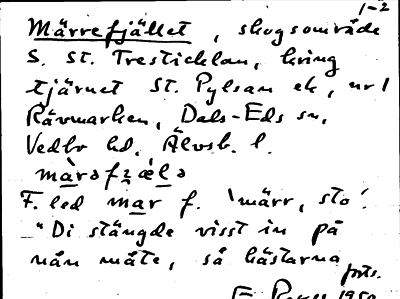 1-2
Märrefjället, skogsområde
S. St. Tresticklan, kring
tjärnet St. Pylsan ek, nr 1
Rävmarken, Dals-Eds sn,
Vedbo hd. Älvsb. l.
F. led mar f. 'märr, sto'.
"Di stängde visst in på
nån måte, så hästarna
forts.